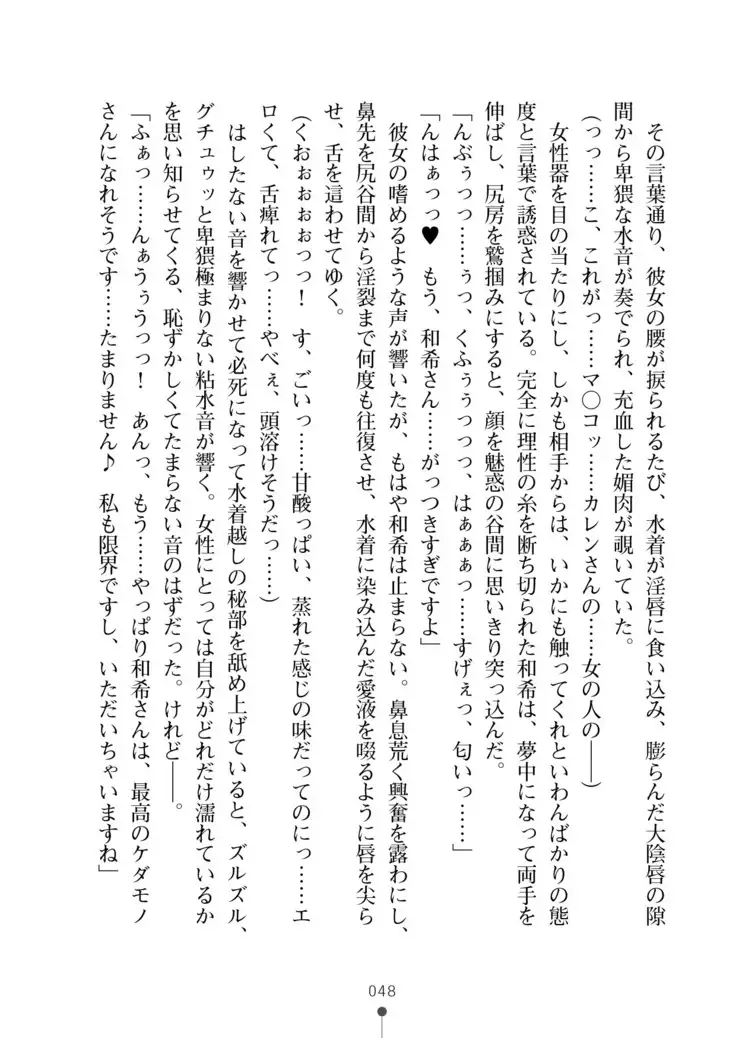 その言葉通り、彼女の腰が捩られるたび、水着が淫唇に食い込み、膨らんだ大陰唇の隙
間から卑猥な水音が奏でられ、充血した媚肉が覗いていた。
（っっ……こ、これがっ……マ〇コッ……カレンさんの……女の人の――）
　女性器を目の当たりにし、しかも相手からは、いかにも触ってくれといわんばかりの態
度と言葉で誘惑されている。完全に理性の糸を断ち切られた和希は、夢中になって両手を
伸ばし、尻房を鷲掴みにすると、顔を魅惑の谷間に思いきり突っ込んだ。
「んぶぅっっ……ぅっ、くふぅぅっっっ、はぁぁぁっ……すげぇっ、匂いっ……」
「んはぁっっ♥　もう、和希さん……がっつきすぎですよ」
　彼女の嗜めるような声が響いたが、もはや和希は止まらない。鼻息荒く興奮を露わにし、
鼻先を尻谷間から淫裂まで何度も往復させ、水着に染み込んだ愛液を啜るように唇を尖ら
せ、舌を這わせてゆく。
（くおぉぉぉぉっっ！　す、ごいっ……甘酸っぱい、蒸れた感じの味だってのにっ……エ
ロくて、舌痺れてっ……やべぇ、頭溶けそうだっ……）
　はしたない音を響かせて必死になって水着越しの秘部を舐め上げていると、ズルズル、
グチュゥッと卑猥極まりない粘水音が響く。女性にとっては自分がどれだけ濡れているか
を思い知らせてくる、恥ずかしくてたまらない音のはずだった。けれど――。
「ふぁっ……んぁうぅうっっ！　あんっ、もう……やっぱり和希さんは、最高のケダモノ
さんになれそうです……たまりません♪　私も限界ですし、いただいちゃいますね」
048